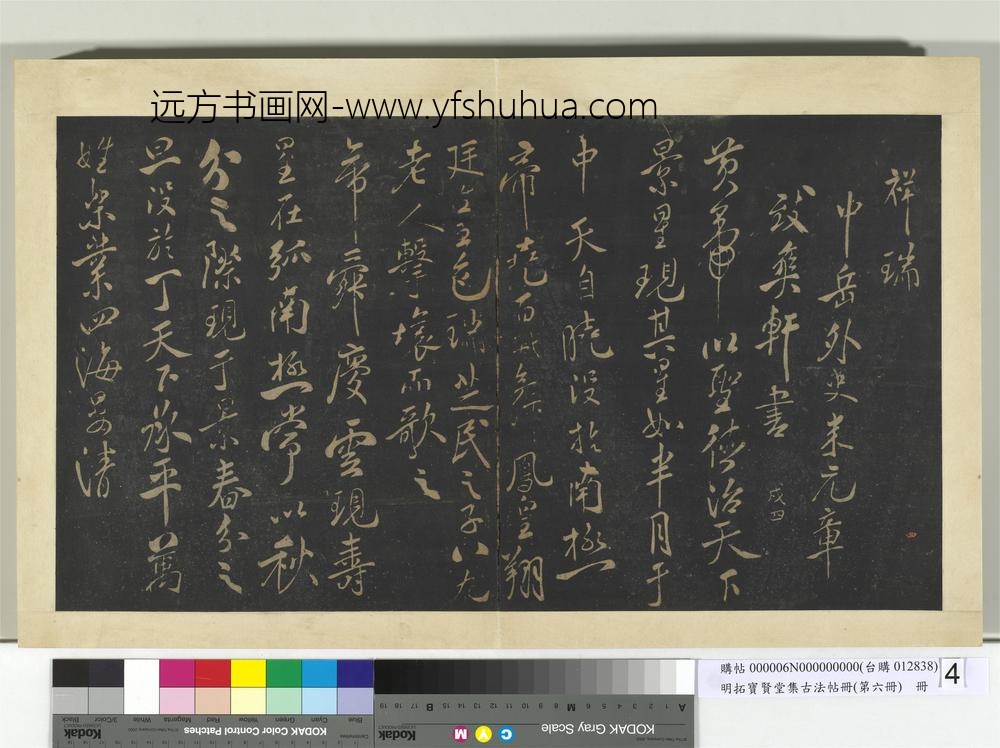 远方书画网-www.yfshuhua.com
祥瑞
中岳外史米元章
致爽軒書 戍四
黄帝以聖德治天下
景星現其星如半月于
中天自曉没於南極
帝堯百 鳳皇翔
廷 生瑞芝民之子八九
老人擊壤而歌之
帝舜慶雲現壽
星在弧南極常以秋
分之際現于景春分之
旦没於丁天下承平萬
姓樂業四海晏清
購帖 000006N000000000(台購 012838)
明拓寶賢堂集古法帖冊(第六冊) 冊
4
Blue
Cyan
Green
Yellow
Red
Magenta
White
3/Color
Black
Kodak
KODAK Color Control Patches
Kodak
KODAK Gray Scale
C Y M
A 1 2 3 4 5 6 M 8 9 10 11 12 13 14 15 B 17 18 19